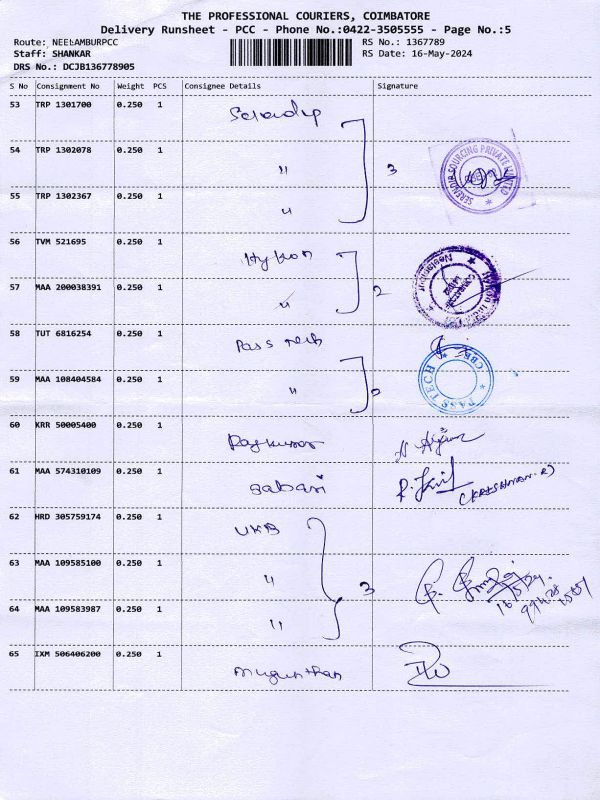 THE PROFESSIONAL COURIERS, COIMBATORE
Delivery Runsheet - PCC - Phone No.:0422-3505555 - Page No.:5
Route: NEELAMBURPCC RS No.: 1367789
Staff: SHANKAR RS Date: 16-May-2024
DRS No.: DCJB136778905
S No Consignment No Weight PCS Consignee Details Signature
53 TRP 1301700 0.250 1
54 TRP 1302078 0.250 1 " 3
SERENDIP SOURCING PRIVATE LIMITED
55 TRP 1302367 0.250 1 "
56 TVM 521695 0.250 1 Hykon
57 MAA 200038391 0.250 1 " 2
58 TUT 6816254 0.250 1 Pass Tech
59 MAA 108404584 0.250 1 " 2
PASS TECH CBE
60 KRR 50005400 0.250 1 Rajkumar
61 MAA 574310109 0.250 1 Sabari
62 HRD 305759174 0.250 1 UKB
63 MAA 109585100 0.250 1 " 3
16/5/24
64 MAA 109583987 0.250 1 "
65 IXM 506406200 0.250 1 Mugunthan